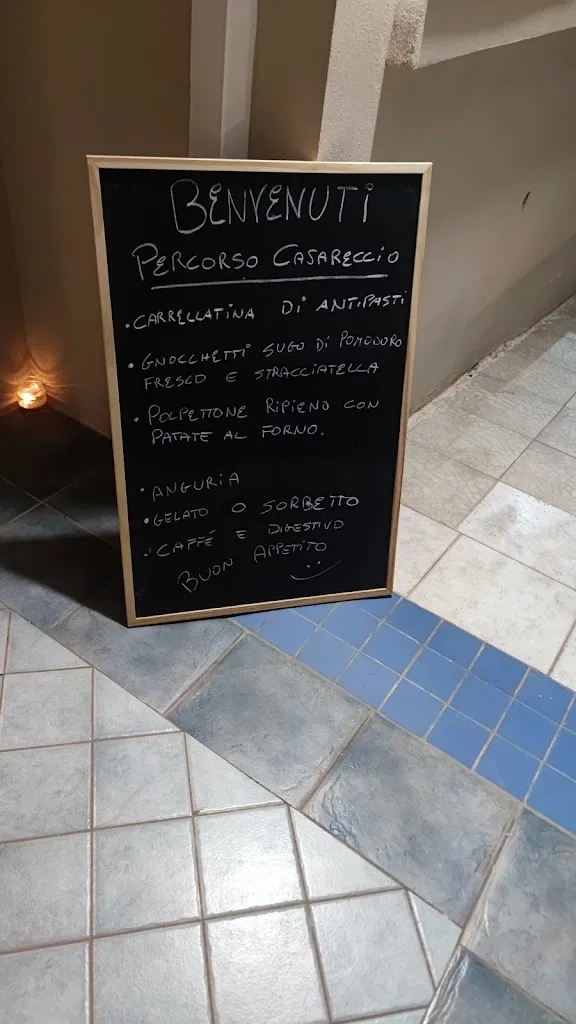 BENVENUTI
PERCORSO CASARECCIO
• CARRELLATINA DI ANTIPASTI
• GNOCCHETTI SUGO DI POMODORO
FRESCO E STRACCIATELLA
• POLPETTONE RIPIENO CON
PATATE AL FORNO.
• ANGURIA
• GELATO O SORBETTO
• CAFFÉ E DIGESTIVO
BUON APPETITO